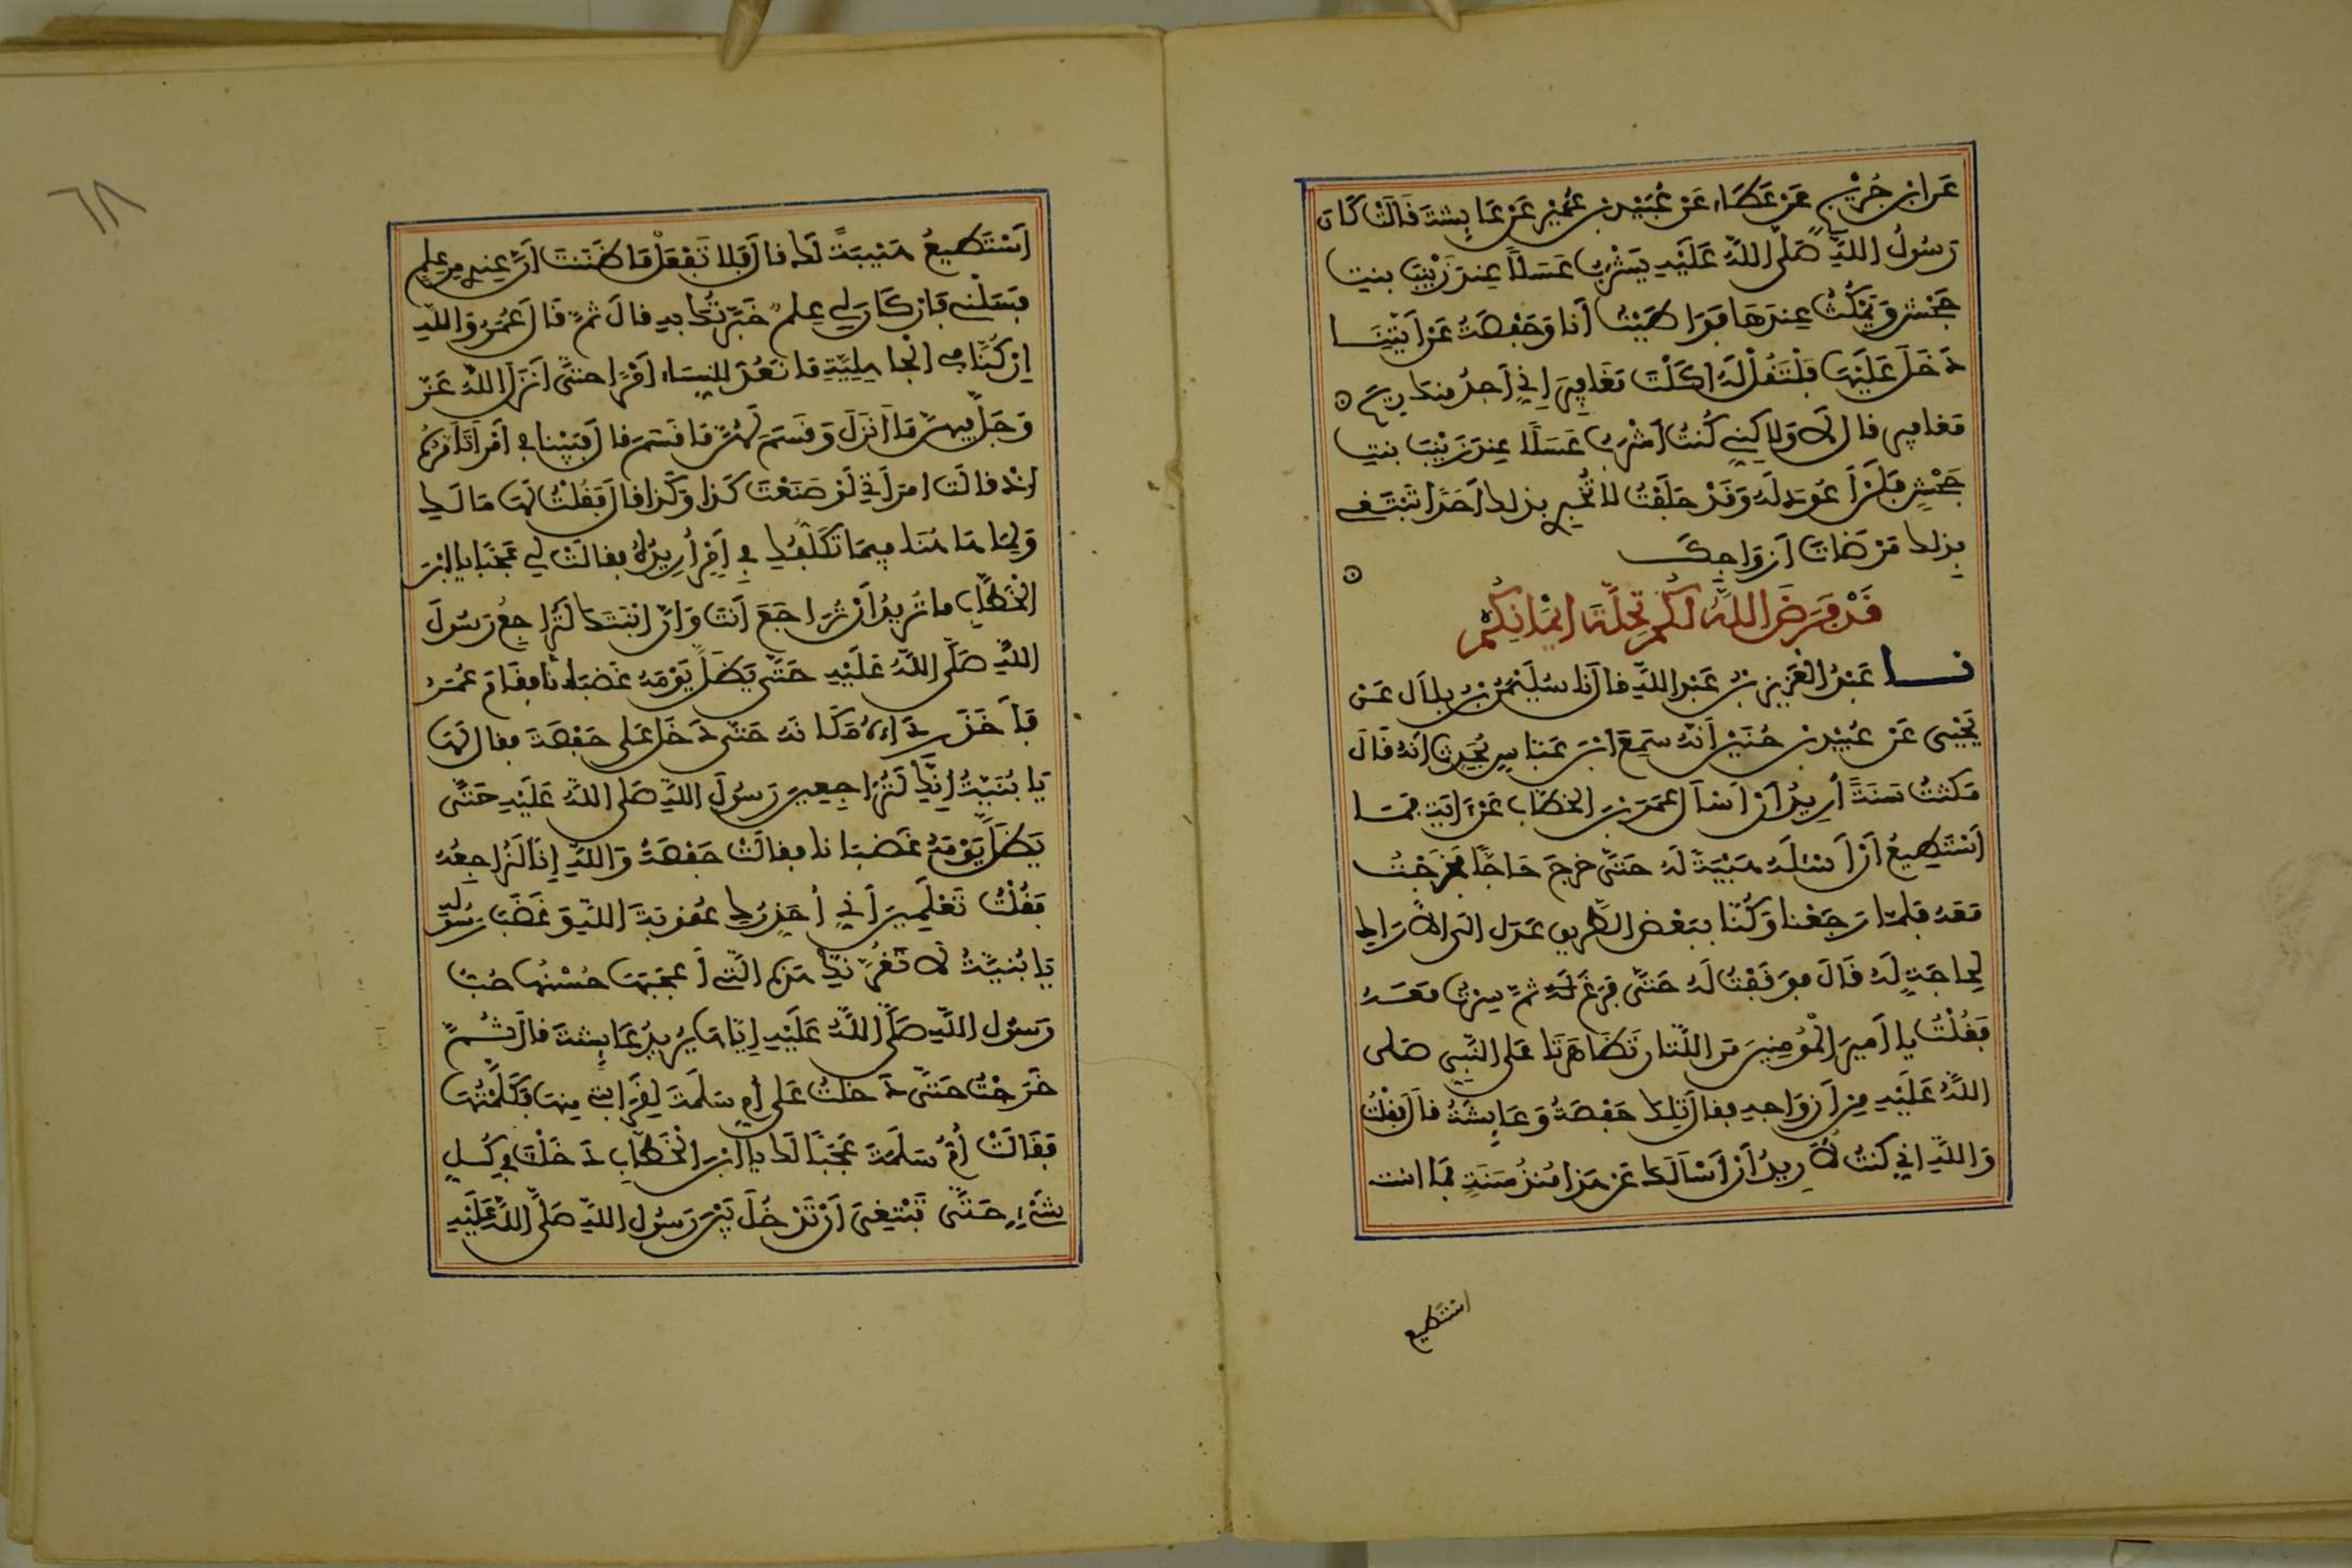 عن ابن جُرَيْجٍ عَنْ عَطَاءٍ عَنْ عُبَيْدِ بن عُمَيْرٍ عَنْ عَايِشَةَ قَالَتْ كَانَ
رَسُولُ اللَّهِ صَلَّى اللَّهُ عَلَيْهِ يَشْرَبُ عَسَلًا عِندَ زَيْنَبَ بنتِ
جَحْشٍ وَيَمْكُثُ عِندَهَا فَوَاطَيْتُ أَنا وَحَفْصَةُ عَنْ أَيَّتِنَا
دَخَلَ عَلَيْهَا فَلْتَقُلْ لَهُ أَكَلْتَ مَغَافِيرَ إِنِّي أَجِدُ مِنكَ رِيحَ
مَغَافِيرَ قال لَا وَلَاكِنِّي كُنتُ أَشْرَبُ عَسَلًا عِندَ زَيْنَبَ بنتِ
جَحْشٍ فَلَنْ أَعُودَ لَهُ وَقَدْ حَلَفْتُ لَا تُخْبِرِي بذلك أَحَدًا تَبْتَغِي
بِذلك مَرْضَاتَ أَزْوَاجِكَ
قَدْ فَرَضَ اللَّهُ لَكُمْ تَحِلَّةَ أَيْمَانِكُمْ
نا عَبْدُ الْعَزِيزِ بنُ عَبْدِ اللَّهِ قال نَا سُلَيْمَنُ بْنُ بِلَالٍ عَنْ
يَحْيَى عَنْ عُبَيْدِ بن حُنَيْنٍ أَنَّهُ سَمِعَ ابْنَ عَبَّاسٍ يُحَدِّثُ أَنَّهُ قَالَ
مَكَثْتُ سَنَةً أُرِيدُ أَنْ أَسْأَلَ عُمَرَ بْنَ الخَطَّابِ عَنْ ءَايَةٍ فَمَا
أَسْتَطِيعُ أَنْ أَسْئَلَهُ هَيْبَةً لَهُ حَتَّى خَرَجَ حَاجًّا فَخَرَجْتُ
مَعَهُ فَلَمَّا رَجَعْنَا وَكُنَّا بِبَعْضِ الطَّرِيقِ عَدَلَ الَى الاَرَاكِ
لِحَاجَةٍ لَهُ قَالَ فَوَقَفْتُ لَهُ حَتَّى فَرَغَ ثُمَّ سِرْتُ مَعَهُ
فَقُلْتُ يا أَمِيرَ الْمُؤْمِنِينَ مَنِ اللَّتَانِ تَظَاهَرَتَا عَلَى النَّبِيِّ صَلَّى
اللَّهُ عَلَيْهِ مِنْ أَزْوَاجِهِ فقال تِلْكَ حَفْصَةُ وَعَايِشَةُ قال فَقُلْتُ
وَاللَّهِ انِّي كُنتُ لأُرِيدُ أَنْ أَسْأَلَكَ عَنْ هَذَا مُنذُ سَنَةٍ فَمَا است
استطيع
٦٨
أَسْتَطِيعُ هَيْبَةً لَكَ قال فَلا تَفْعَلْ مَا ظَنَنتَ أَنَّ عِندِي مِن عِلْمٍ
فَسَلْنِي فَإِن كَانَ لِي عِلْمٌ خَبَّرْتُكَ بِهِ قال ثُمَّ قَالَ عُمَرُ وَاللَّهِ
إِنْ كُنَّا فِي الْجَاهِلِيَّةِ مَا نَعُدُّ لِلنِّسَاءِ أَمْرًا حَتَّى أَنزَلَ اللَّهُ عَزَّ
وَجَلَّ فِيهِنَّ مَا أَنزَلَ وَقَسَمَ لَهُنَّ مَا قَسَمَ قال فَبَيْنَا فِي أَمْرٍ أَتَأَمَّرُهُ
إِذْ قالت امرَأَتِي لَوْ صَنَعْتَ كَذَا وَكَذَا قال فَقُلْتُ لَهَا مَا لَكِ
وَلِمَا هَاهُنَا فِيمَا تَكَلُّفُكِ فِي أَمْرٍ أُرِيدُهُ فقالَتْ لِي عَجَبًا يا ابْنَ
الْخَطَّابِ ما تُرِيدُ أَنْ تُرَاجَعَ أَنتَ وَإِنَّ ابْنَتَكَ لَتُرَاجِعُ رَسُولَ
اللَّهِ صَلَّى اللَّهُ عَلَيْهِ حَتَّى يَظَلَّ يَوْمَهُ غَضْبَانا فقَامَ عُمَرُ
فَأَخَذَ رِدَاءَهُ مَكَانَهُ حَتَّى دَخَلَ عَلَى حَفْصَةَ فقال لَهَا
يَا بُنَيَّةُ إِنَّكِ لَتُرَاجِعِينَ رَسُولَ اللَّهِ صَلَّى اللَّهُ عَلَيْهِ حَتَّى
يَظَلَّ يَوْمَهُ غَضْبَانا فقالَتْ حَفْصَةُ وَاللَّهِ إِنَّا لَنُرَاجِعُهُ
فَقُلْتُ تَعْلَمِينَ أَنِّي أُحَذِّرُكِ عُقُوبَةَ اللَّهِ وَغَضَبَ رَسُولِهِ
يَا بُنَيَّةُ لَا تَغُرَّنَّكِ هَذِهِ الَّتِي أَعْجَبَهَا حُسْنُهَا حُبُّ
رَسُولِ اللَّهِ صَلَّى اللَّهُ عَلَيْهِ إِيَّاهَا يُرِيدُ عَايِشَةَ قال ثُمَّ
خَرَجْتُ حَتَّى دَخَلْتُ عَلَى أُمِّ سَلَمَةَ لِقَرَابَتِي مِنهَا فَكَلَّمْتُهَا
فَقَالَتْ أُمُّ سَلَمَةَ عَجَبًا لَكَ يا ابْنَ الْخَطَّابِ دَخَلْتَ فِي كُلِّ
شَيْءٍ حَتَّى تَبْتَغِيَ أَنْ تَدْخُلَ بَيْنَ رَسُولِ اللَّهِ صَلَّى اللَّهُ عَلَيْهِ